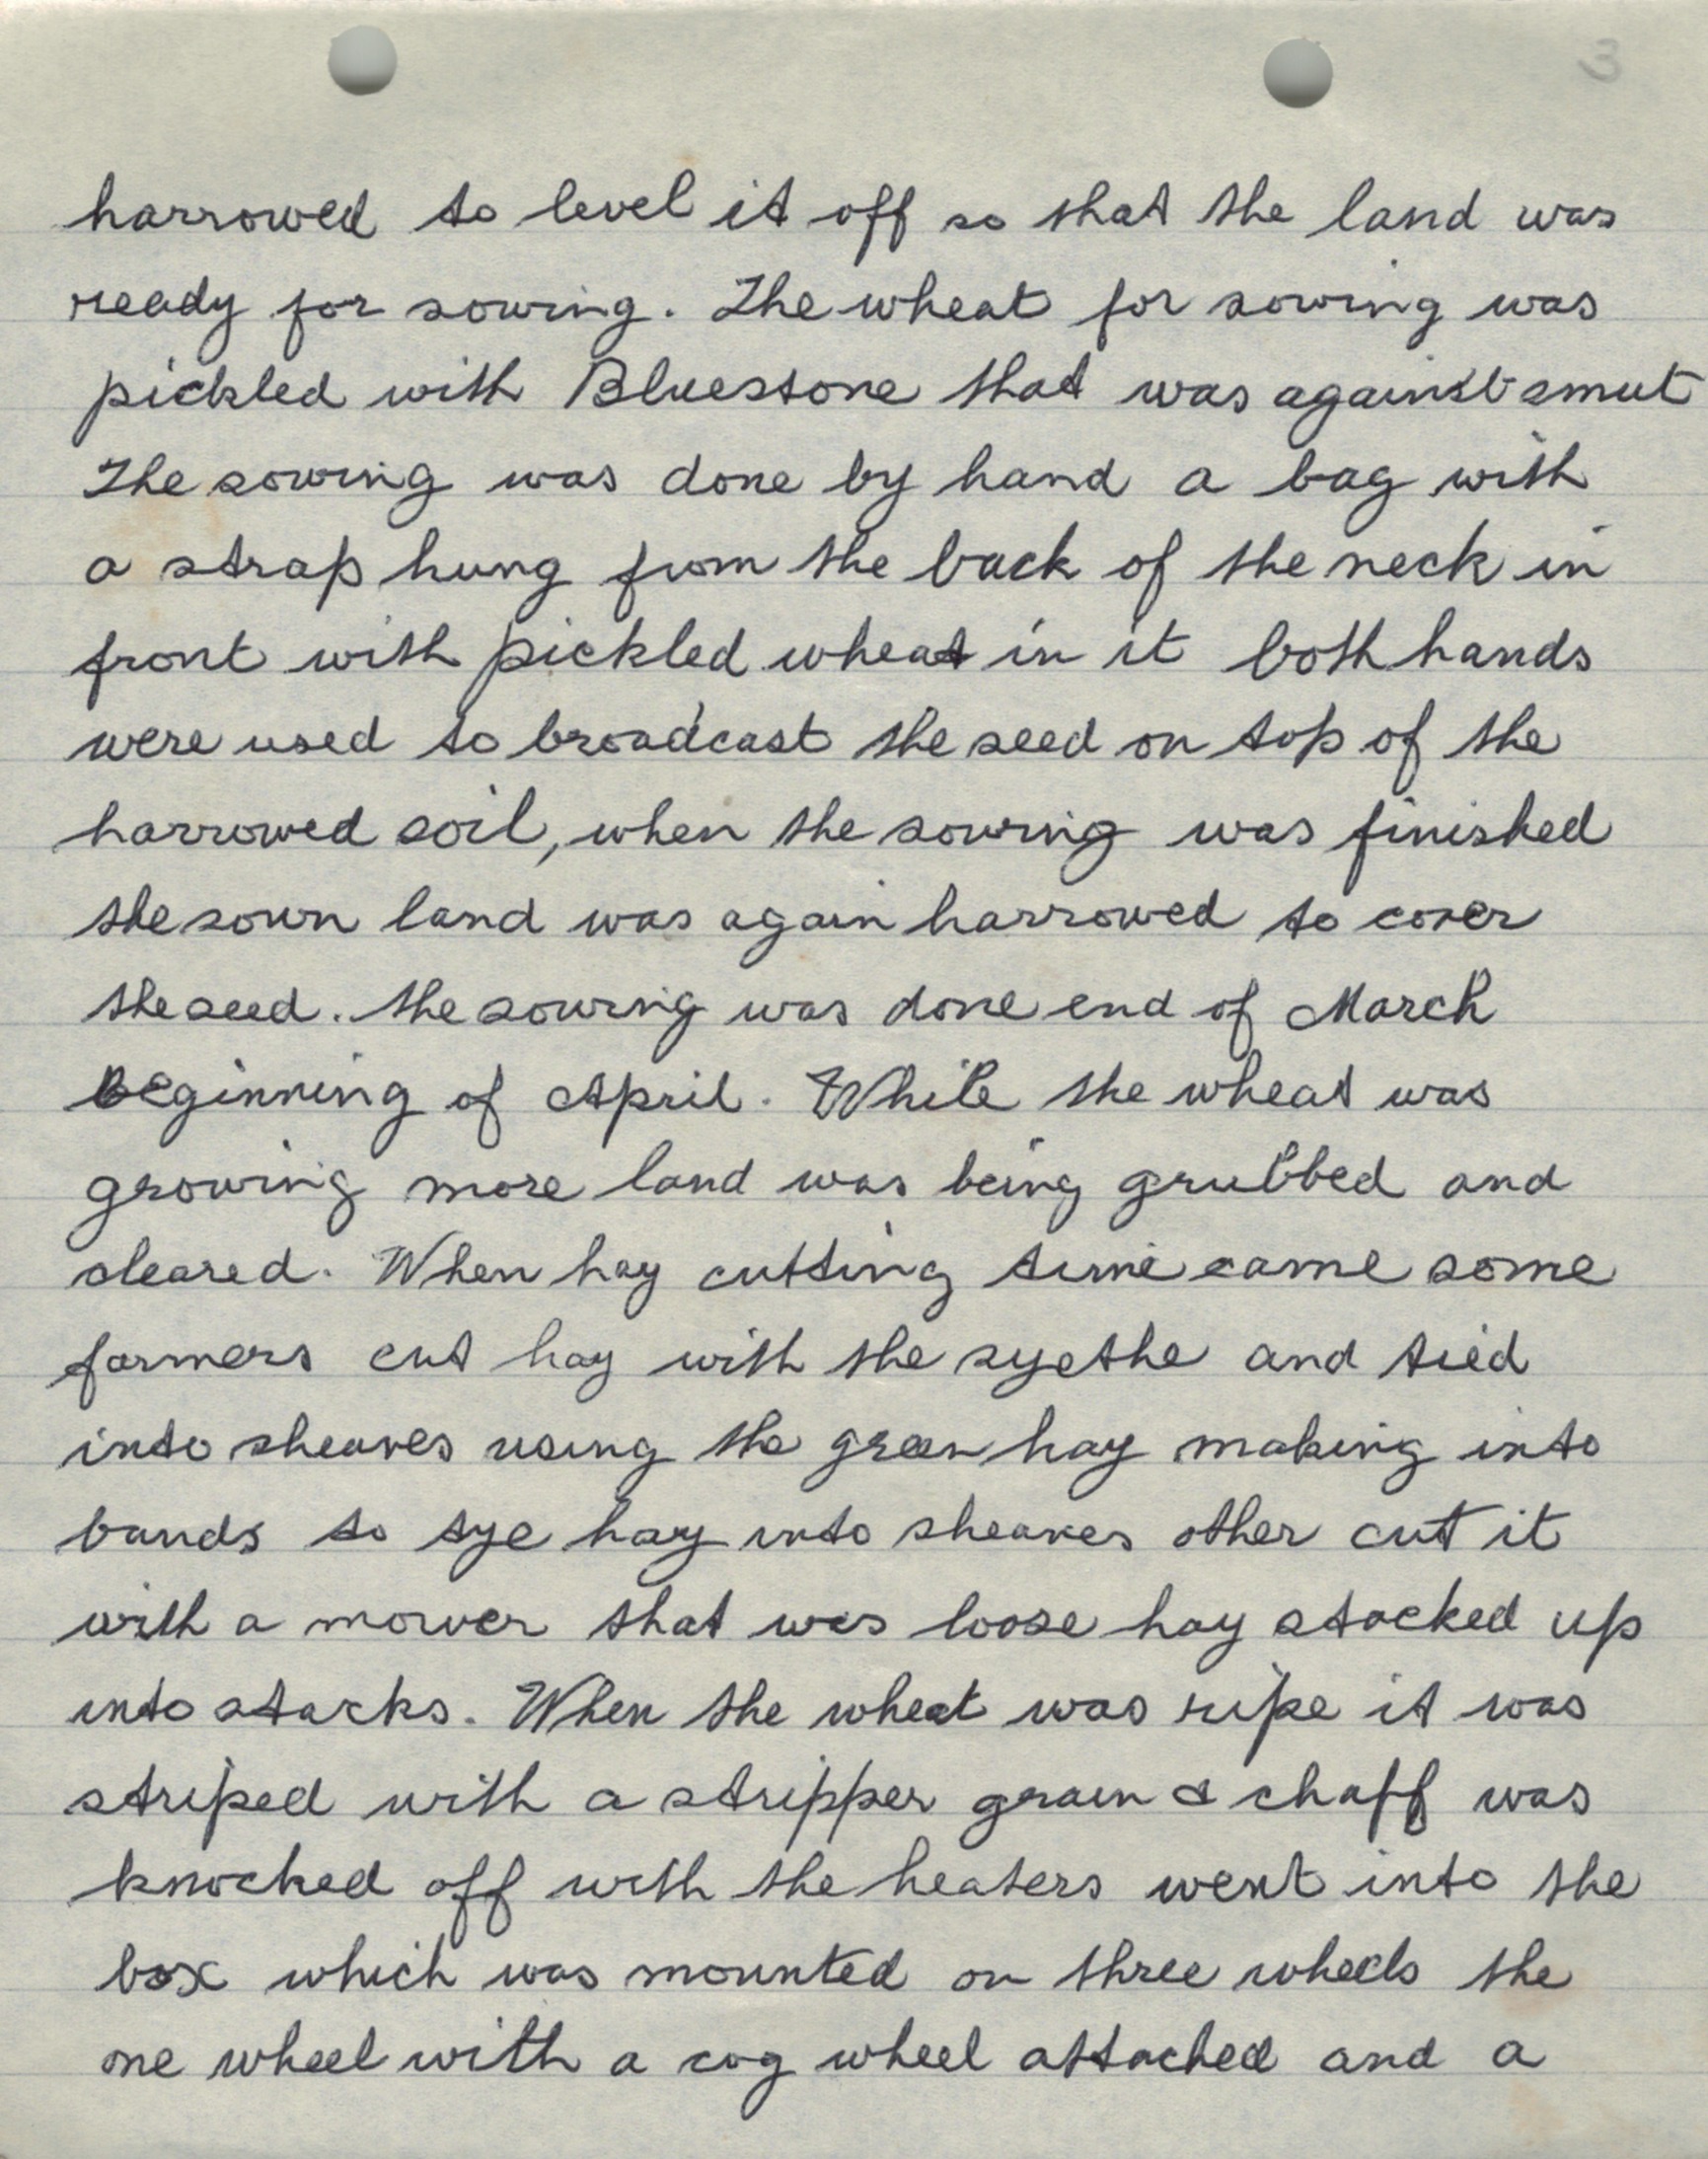 3
harrowed to level it off so that the land was
ready for sowing. The wheat for sowing was
pickled with Bluestone that was against smut
The sowing was done by hand a bag with
a strap hung from the back of the neck in
front with pickled wheat in it both hands
were used to broadcast the seed on top of the
harrowed soil, when the sowing was finished
the sown land was again harrowed to cover
the seed. the sowing was done end of March
Beginning of April. While the wheat was
growing more land was being grubbed and
cleared. When hay cutting time came some
farmers cut hay with the sythe and tied
into sheaves using the green hay making into
bands to tye hay into sheaves other cut it
with a mower that was loose hay stacked up
into stacks. When the wheat was ripe it was
striped with a stripper grain & chaff was
knocked off with the beaters went into the
box which was mounted on three wheels the
one wheel with a cog wheel attached and a